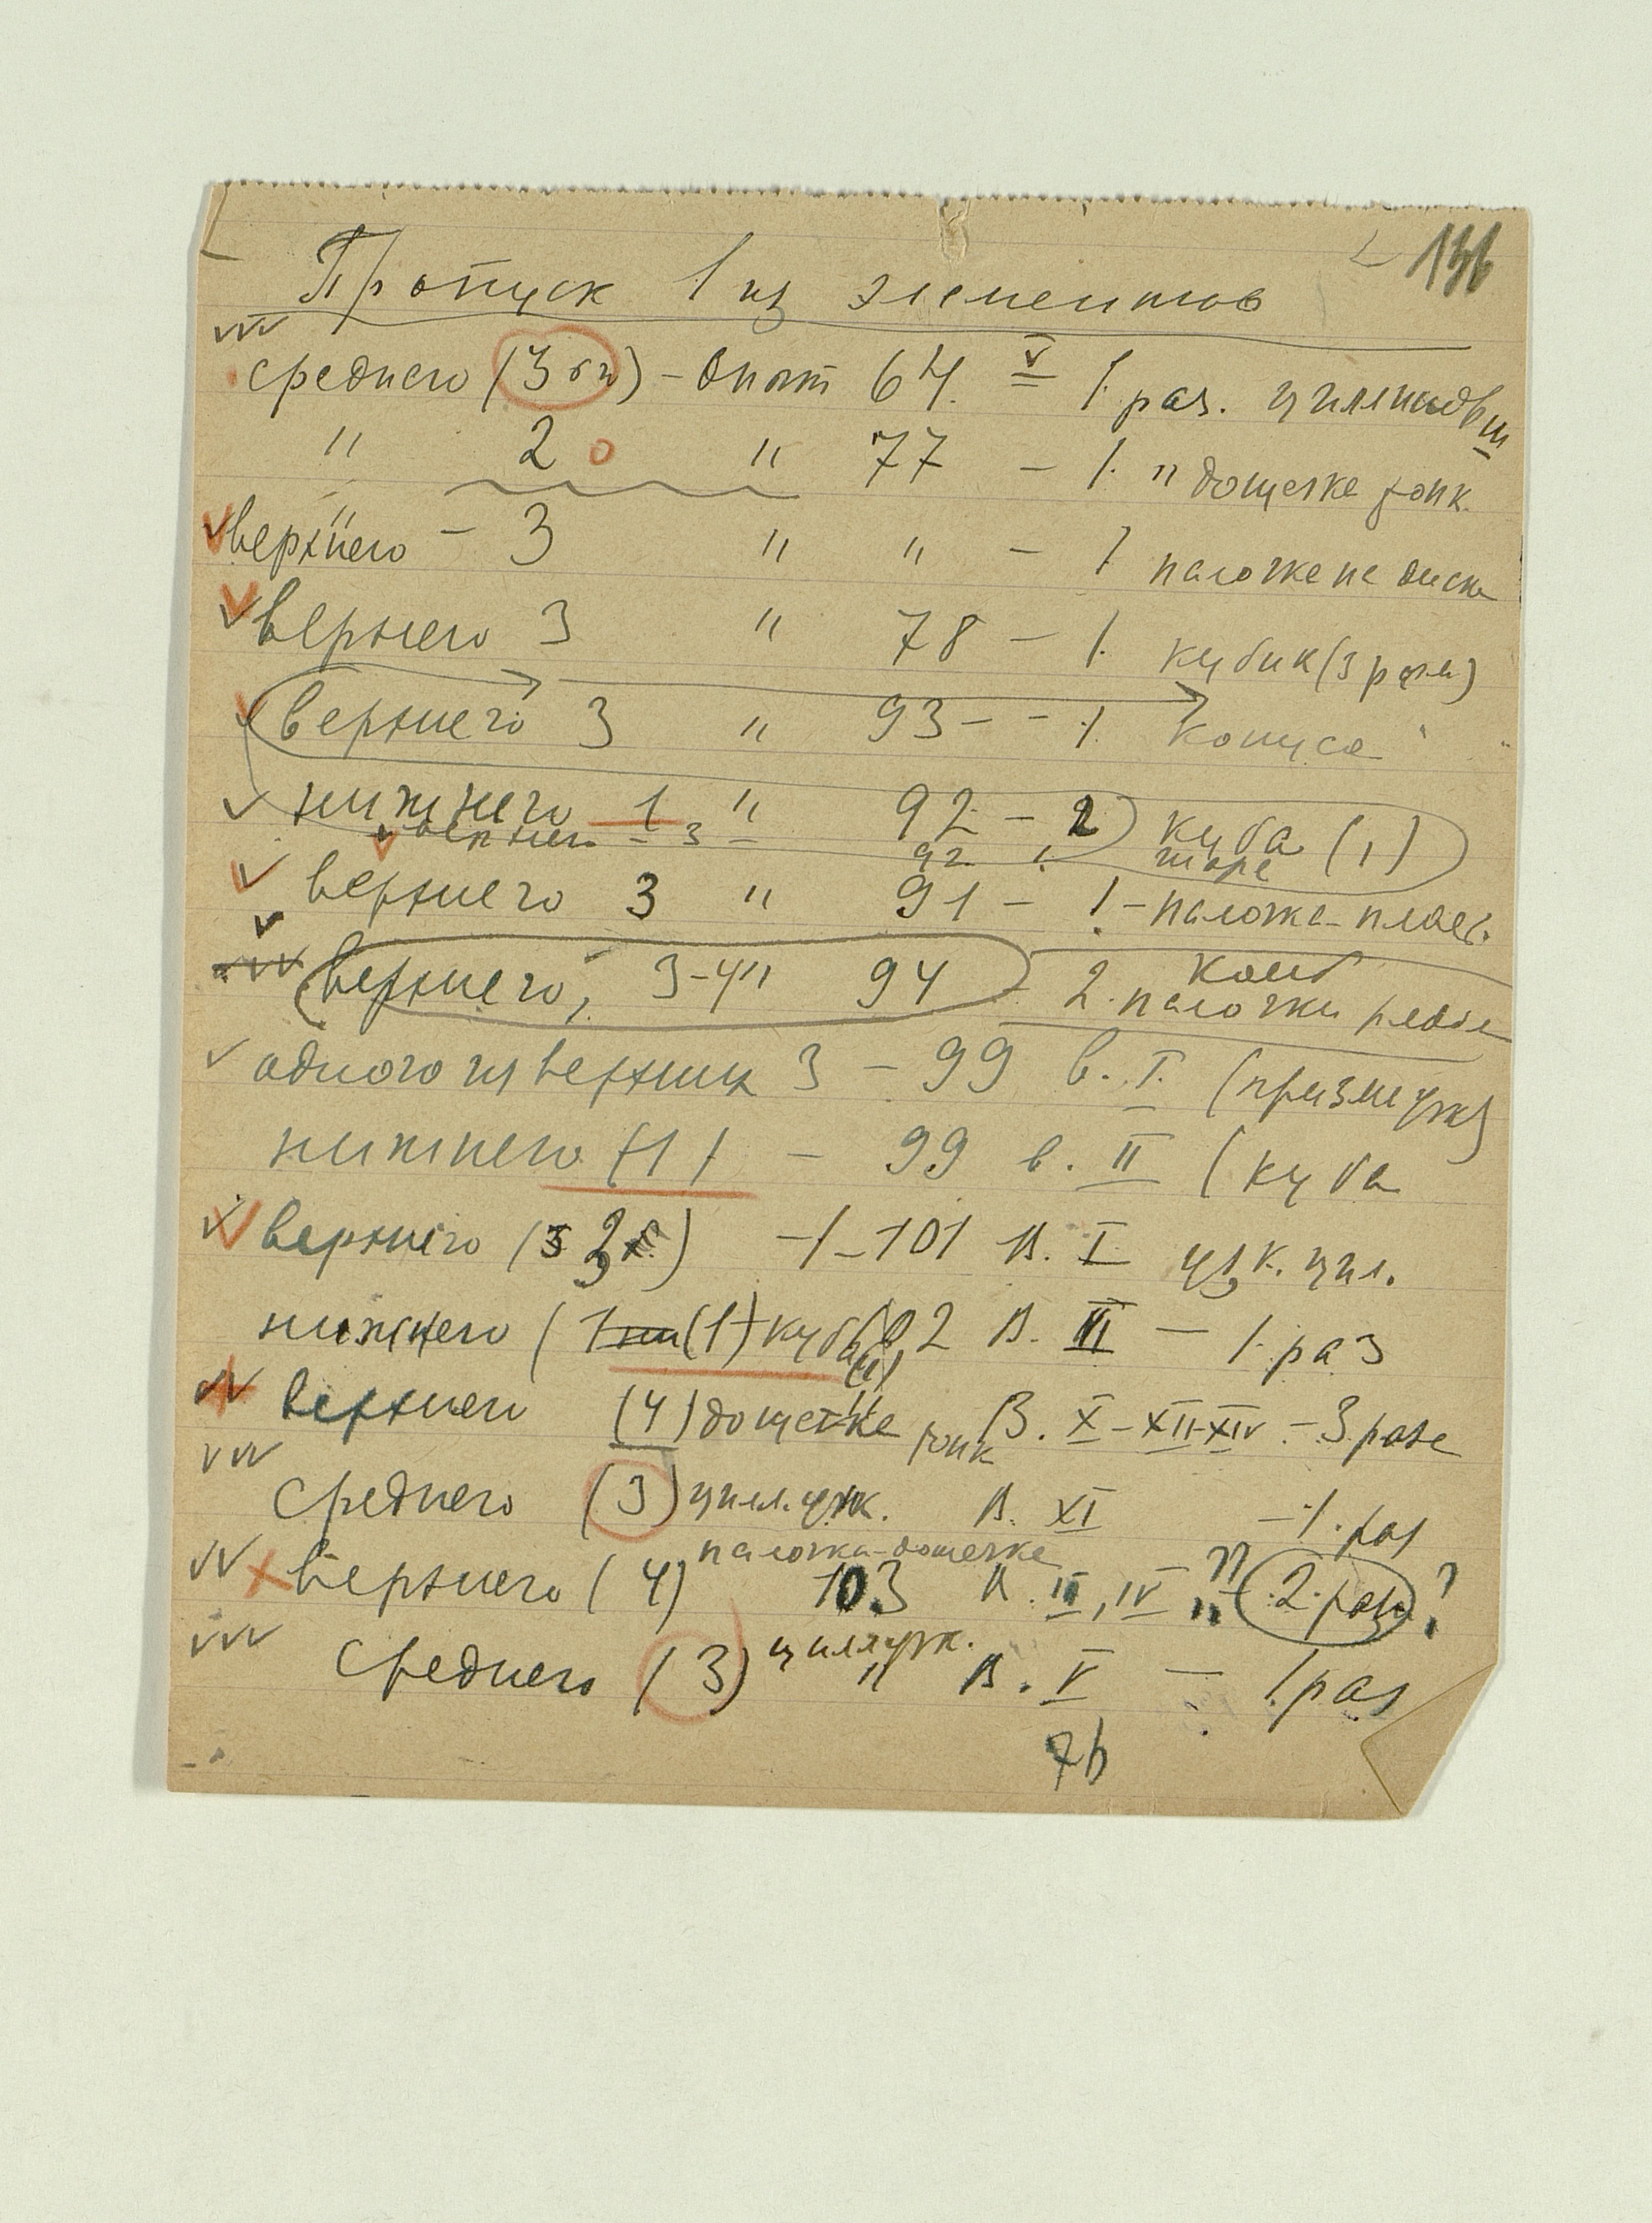 136
Пропуск 1 из элементов
среднего (3 эл) – опыт 64. V 1 раз. цилиндр III
" 2 " 77 – 1. " дощечка тонк.
верхнего – 3 " " – 1 палочке не диска
верхнего 3 " 78 – 1. кубик (3 раза)
верхнего 3 " 93 – – 1. конуса
нижнего 1 " 92 – 2 куба (1)
верхнего – 3 – 92 1.
верхнего 3 " 91 – 1 – палочка – пласт.
верхнего, 3–4 " 94 2. палочки
одного из верхних 3 – 99 в. I. (призме узк)
нижнего (1) – 99 в. II (куба
верхнего (3 – 1 – 101 В. I узк. цил.
нижнего (1 (1) куба 102 В. III – 1 раз
верхнего (4) дощечке тонк " В. X – XII – XIV – 3 раза
среднего (3) цил. узк. В. XI – 1. раз
палочка – дощечке
верхнего (4) 103 В. II, IV, ?? 2. раза ?
среднего (3) цил узк. " В. V – 1 раз
76